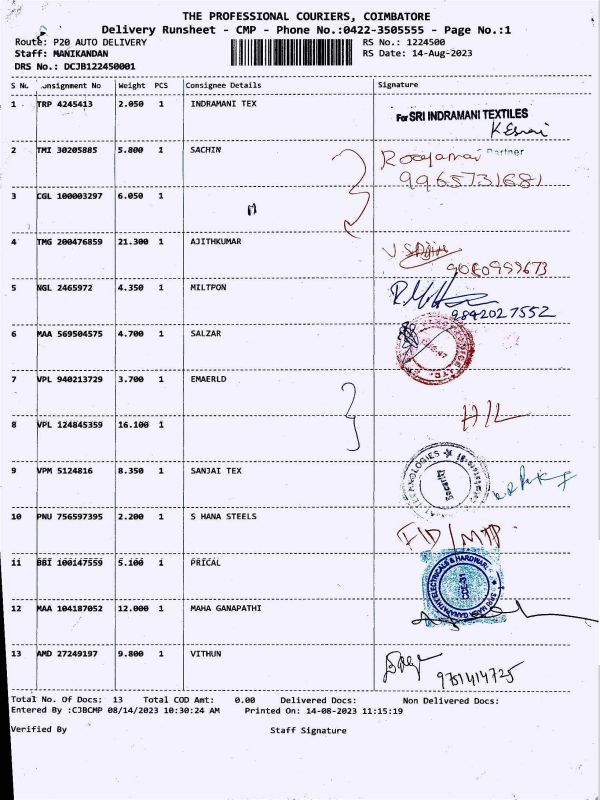 THE PROFESSIONAL COURIERS, COIMBATORE
Delivery Runsheet - CMP - Phone No.:0422-3505555 - Page No.:1
Route: P20 AUTO DELIVERY RS No.: 1224500
Staff: MANIKANDAN RS Date: 14-Aug-2023
DRS No.: DCJB122450001
S No Consignment No Weight PCS Consignee Details Signature
1 TRP 4245413 2.050 1 INDRAMANI TEX
For SRI INDRAMANI TEXTILES
Partner
2 TMI 30205885 5.800 1 SACHIN
9965731681
3 CGL 100003297 6.050 1
4 TMG 200476859 21.300 1 AJITHKUMAR
9080999673
5 NGL 2465972 4.350 1 MILTPON
9842027552
6 MAA 569504575 4.700 1 SALZAR
7 VPL 940213729 3.700 1 EMAERLD
H/L
8 VPL 124845359 16.100 1
9 VPM 5124816 8.350 1 SANJAI TEX
TECHNOLOGIES
Security
10 PNU 756597395 2.200 1 S HANA STEELS
11 BBI 100147559 5.100 1 PRICAL
12 MAA 104187052 12.000 1 MAHA GANAPATHI
SRI MAHA GANAPATHY ELECTRICALS & HARDWARE
13 AMD 27249197 9.800 1 VITHUN
9751414725
Total No. Of Docs: 13 Total COD Amt: 0.00 Delivered Docs: Non Delivered Docs:
Entered By :CJBCMP 08/14/2023 10:30:24 AM Printed On: 14-08-2023 11:15:19
Verified By Staff Signature